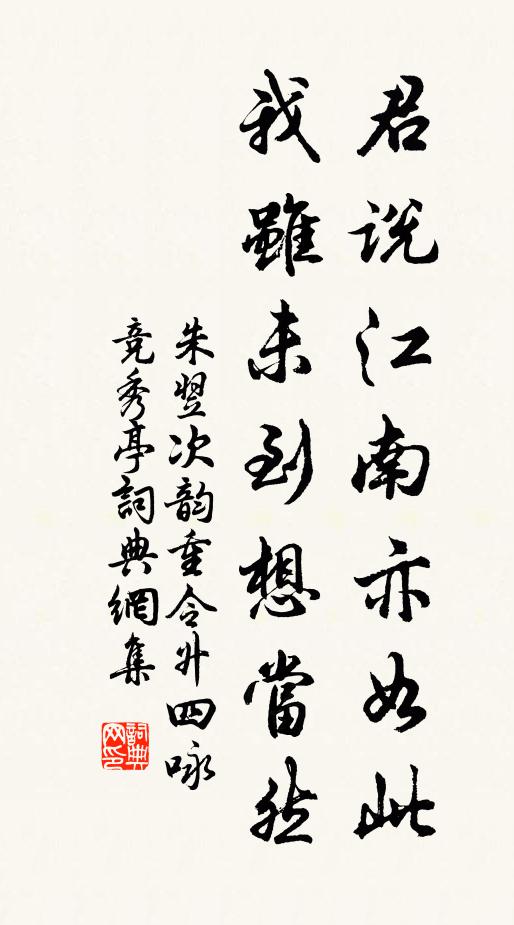 君説江南亦如此
我雖未到想當然
朱翌次韵重令升四咏
竞秀亭詞典網集
詞典网印